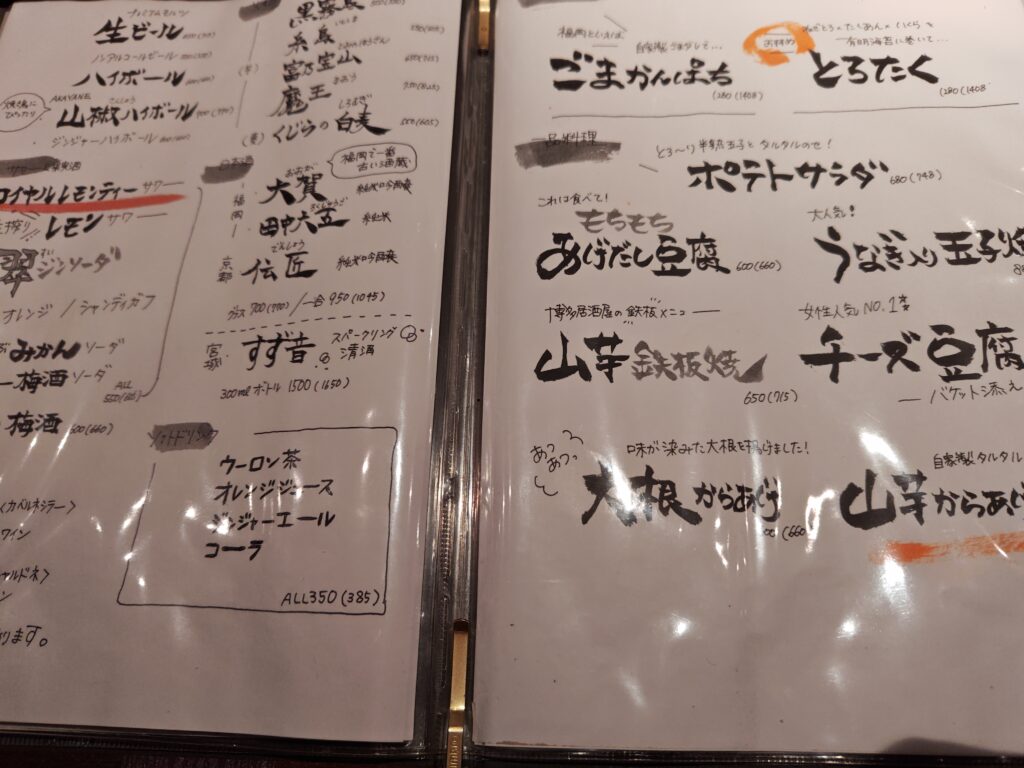 プレミアムモルツ
生ビール
ノンアルコールビール
ハイボール
焼鳥に
ぴったり
AKAYANE
さんしょう
山椒ハイボール
ジンジャーハイボール
ロイヤルレモンティー サワー
レモン サワー
翠 ジンソーダ
オレンジ / シャンディガフ
みかん ソーダ
梅酒 ソーダ
ALL
550(605)
梅酒 600(660)
<カベルネシラー>
ワイン
シャルドネ>
ります。
黒霧島
糸島
富乃宝山
まおう
魔王
しろむぎ
(麦) くじらの白麦 550(605)
日本酒
福岡で一番
古い酒蔵
福岡
おおが
大賀 純米吟醸
田中六五 純米
京都
でんしょう
伝匠 純米吟醸
グラス 700(770) / 一合 950(1045)
宮城
すず音 スパークリング
清酒
300mlボトル 1500(1650)
ソフトドリンク
ウーロン茶
オレンジジュース
ジンジャーエール
コーラ
ALL350(385)
福岡といえば 自家製ごまダレで…
ごまかんぱち
1280(1408)
おすすめ
有明海苔に巻いて…
とろたく
1280(1408
一品料理
とろ〜り半熟玉子とタルタルのせ!
ポテトサラダ 680(748)
これは食べて!
もちもち
あげだし豆腐 600(660)
大人気!
うなぎ入り玉子焼
博多居酒屋の鉄板メニュー
山芋鉄板焼
650(715)
女性人気NO.1
チーズ豆腐
バケット添え
あつあつっ
味が染みた大根を揚げました!
大根からあげ
(660
自家製タルタル
山芋からあげ